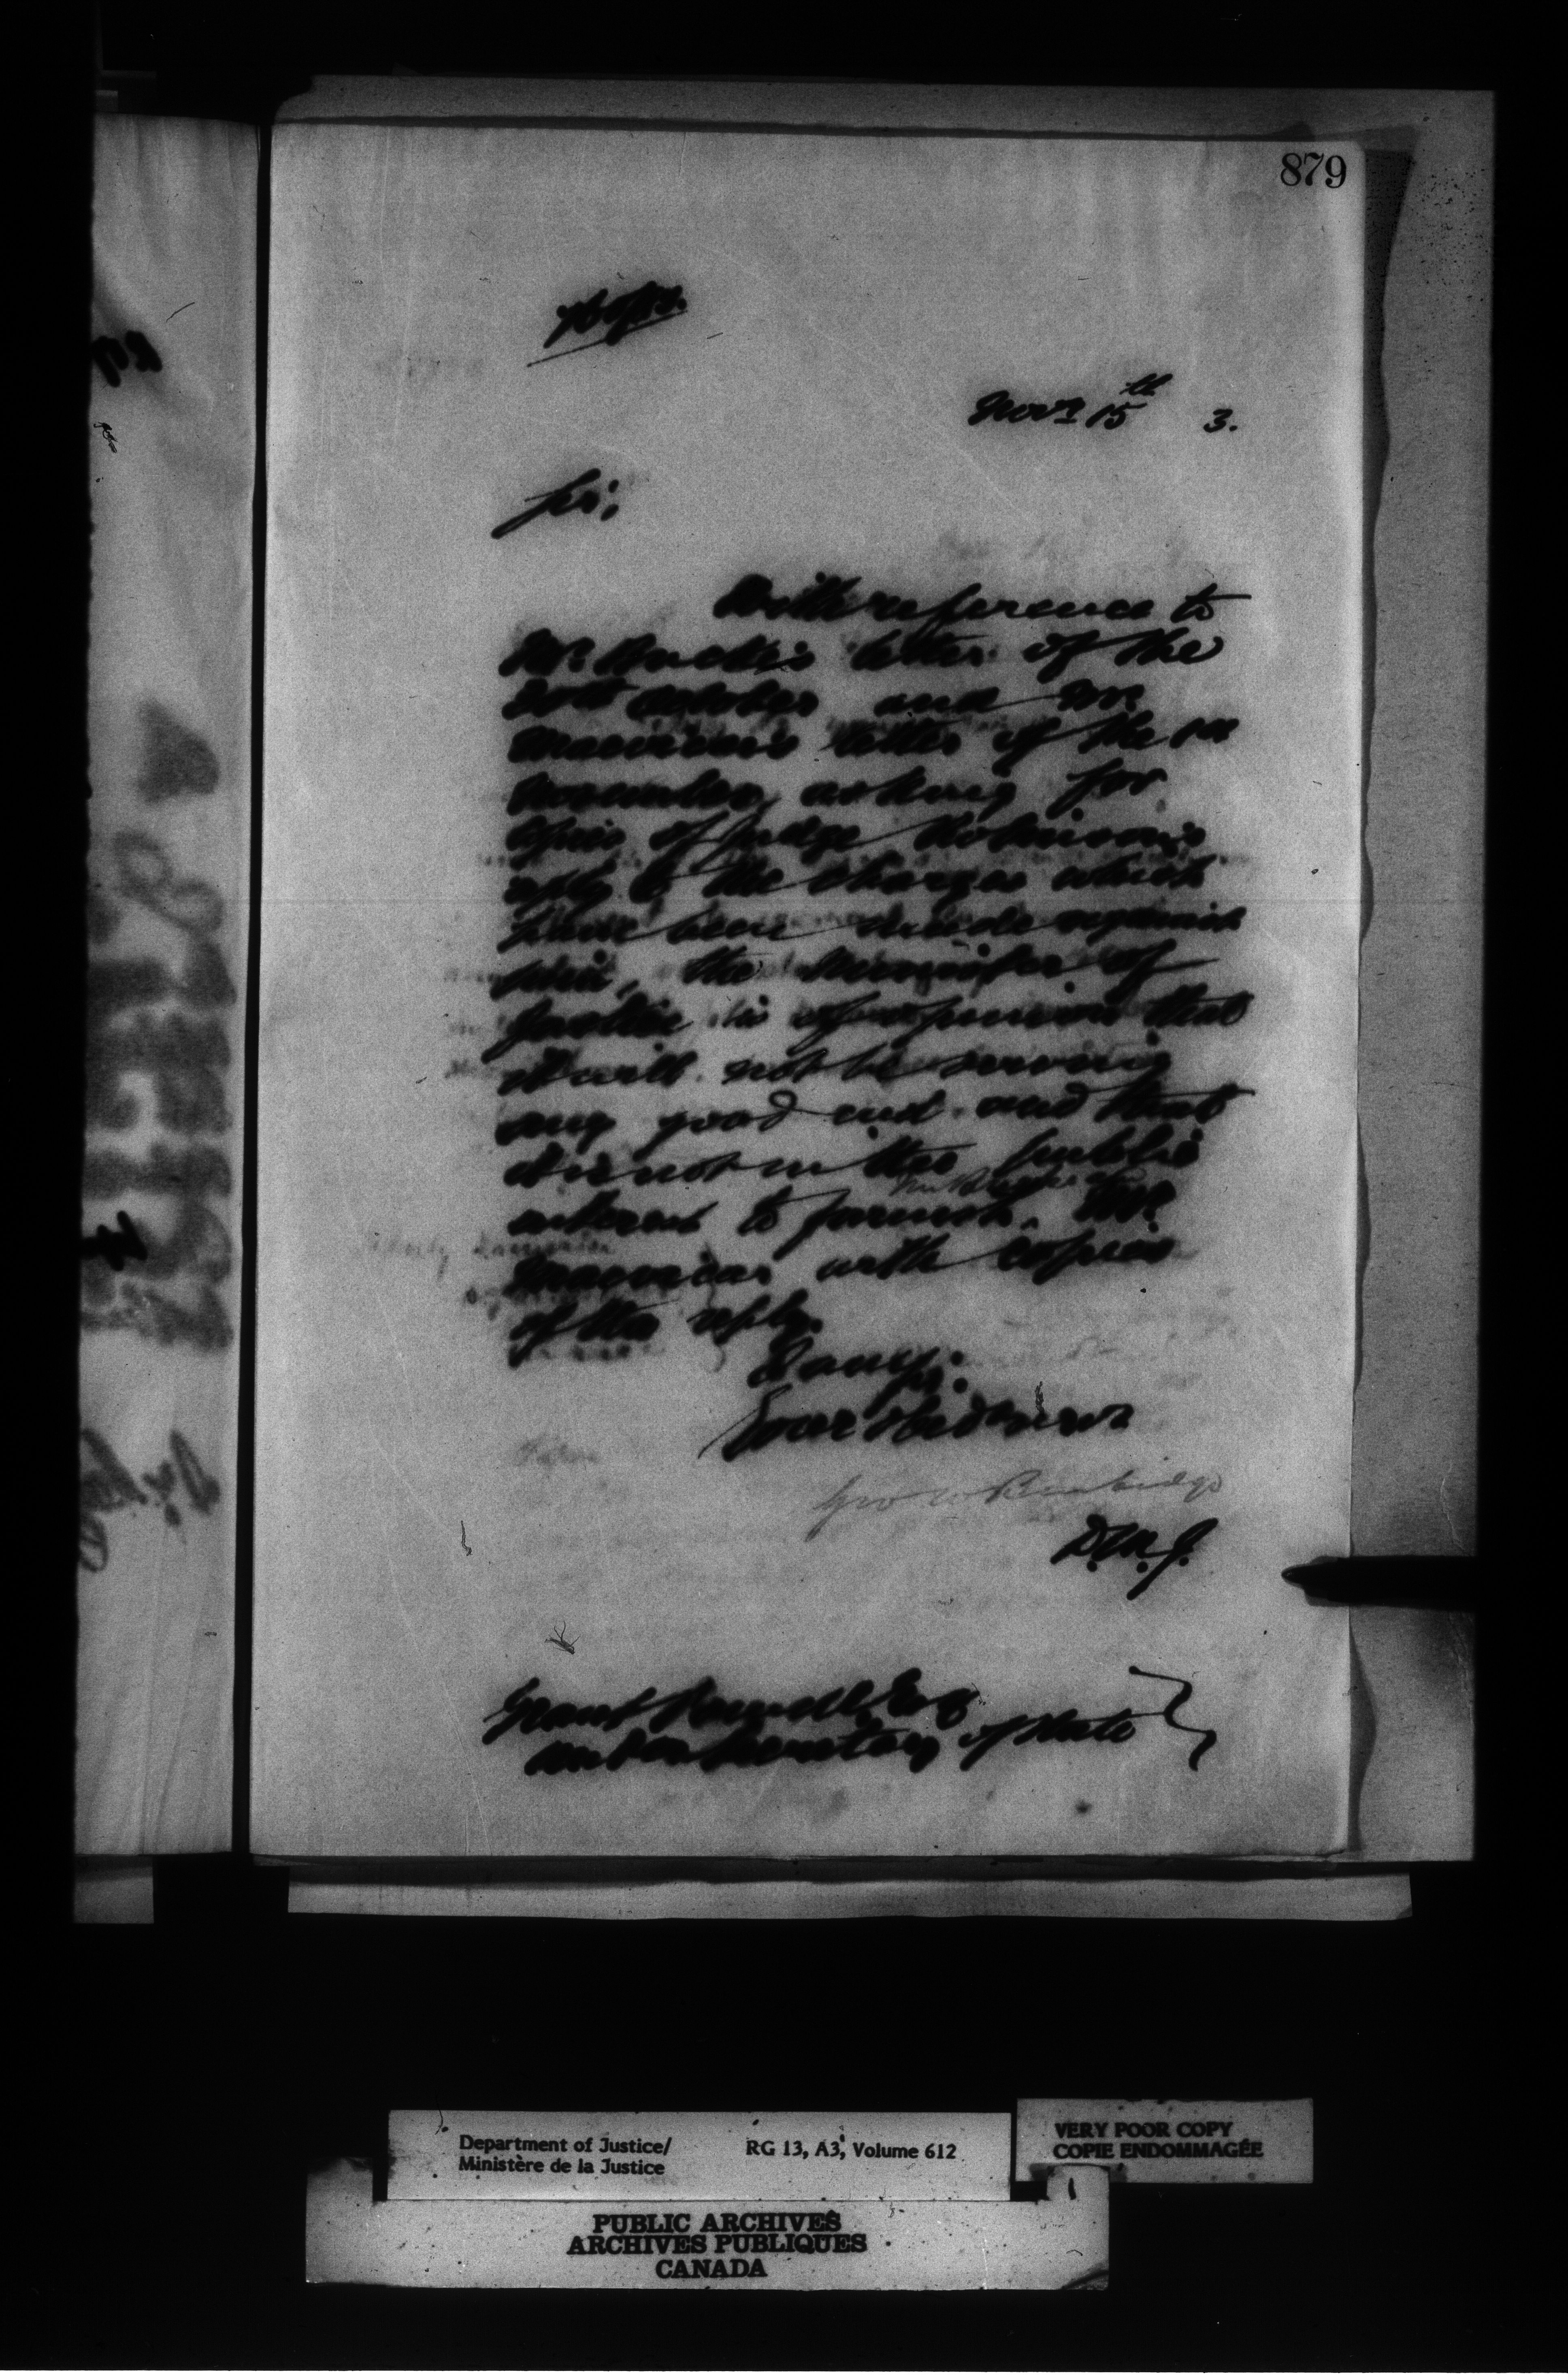 879
Novr 15th 3.
Sir,
With reference to
Mr. letter of the
October and Mr.
letter of the 1st
November, asking for
copies of Judge Robinson's
reply to the charges which
have been made against
him, the Minister of
Justice is of opinion that
it will not be serving
any good end and that
it is not in the public
interest to furnish Mr.
with copies
of the reply.
I am, Sir,
Your obed. servt.
Geo W Burbidge
D.M.J.
Grant Powell, Esq
Under Secretary of State
Department of Justice/
Ministère de la Justice
RG 13, A3, Volume 612
VERY POOR COPY
COPIE ENDOMMAGÉE
PUBLIC ARCHIVES
ARCHIVES PUBLIQUES
CANADA